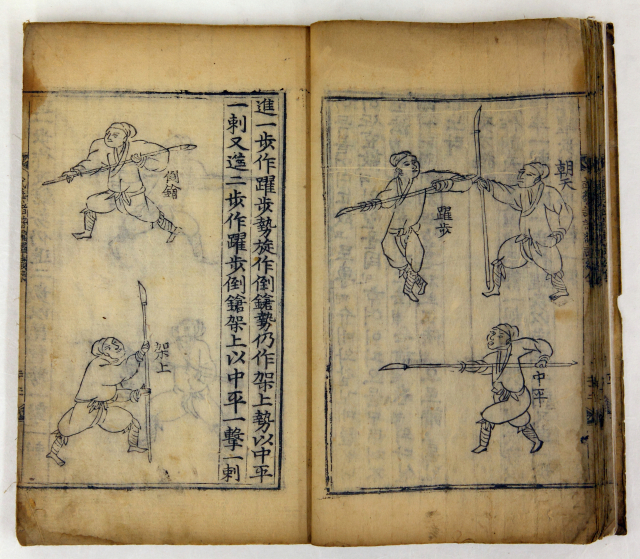 朝天
躍步
中平
進一步作躍步勢旋作倒鎗勢仍作架上勢以中平
一刺又進二步作躍步倒鎗架上以中平一擊一刺
倒鎗
架上